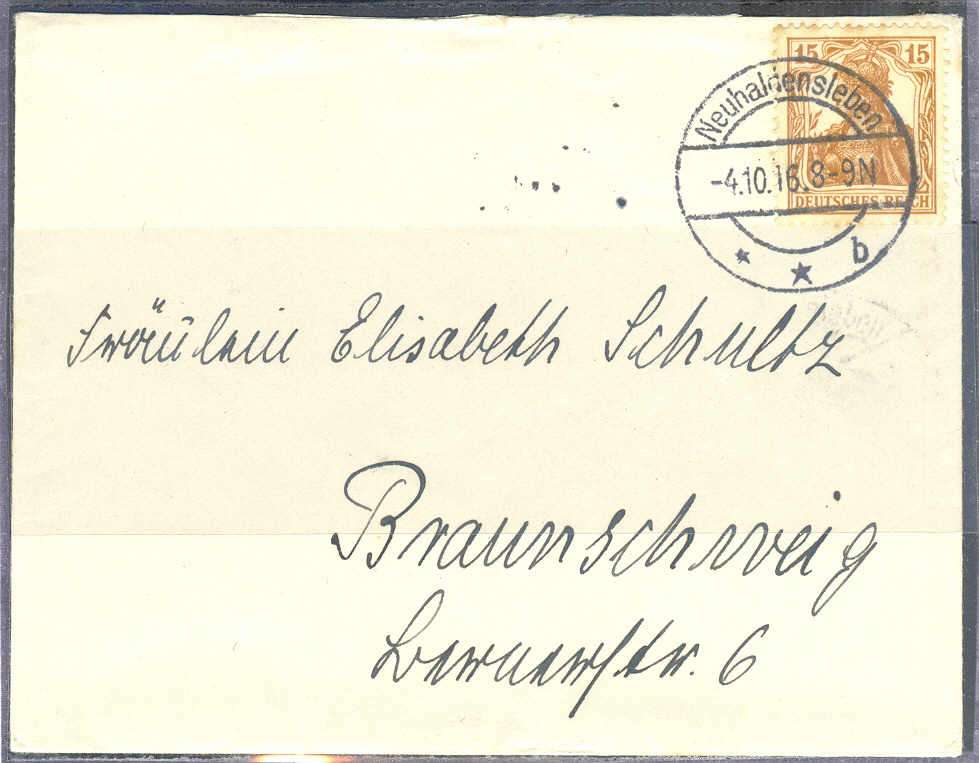 15 15
DEUTSCHES REICH
Neuhaldensleben
-4.10.16.8-9N
* * b
Fräulein Elisabeth Schultz
Braunschweig
6